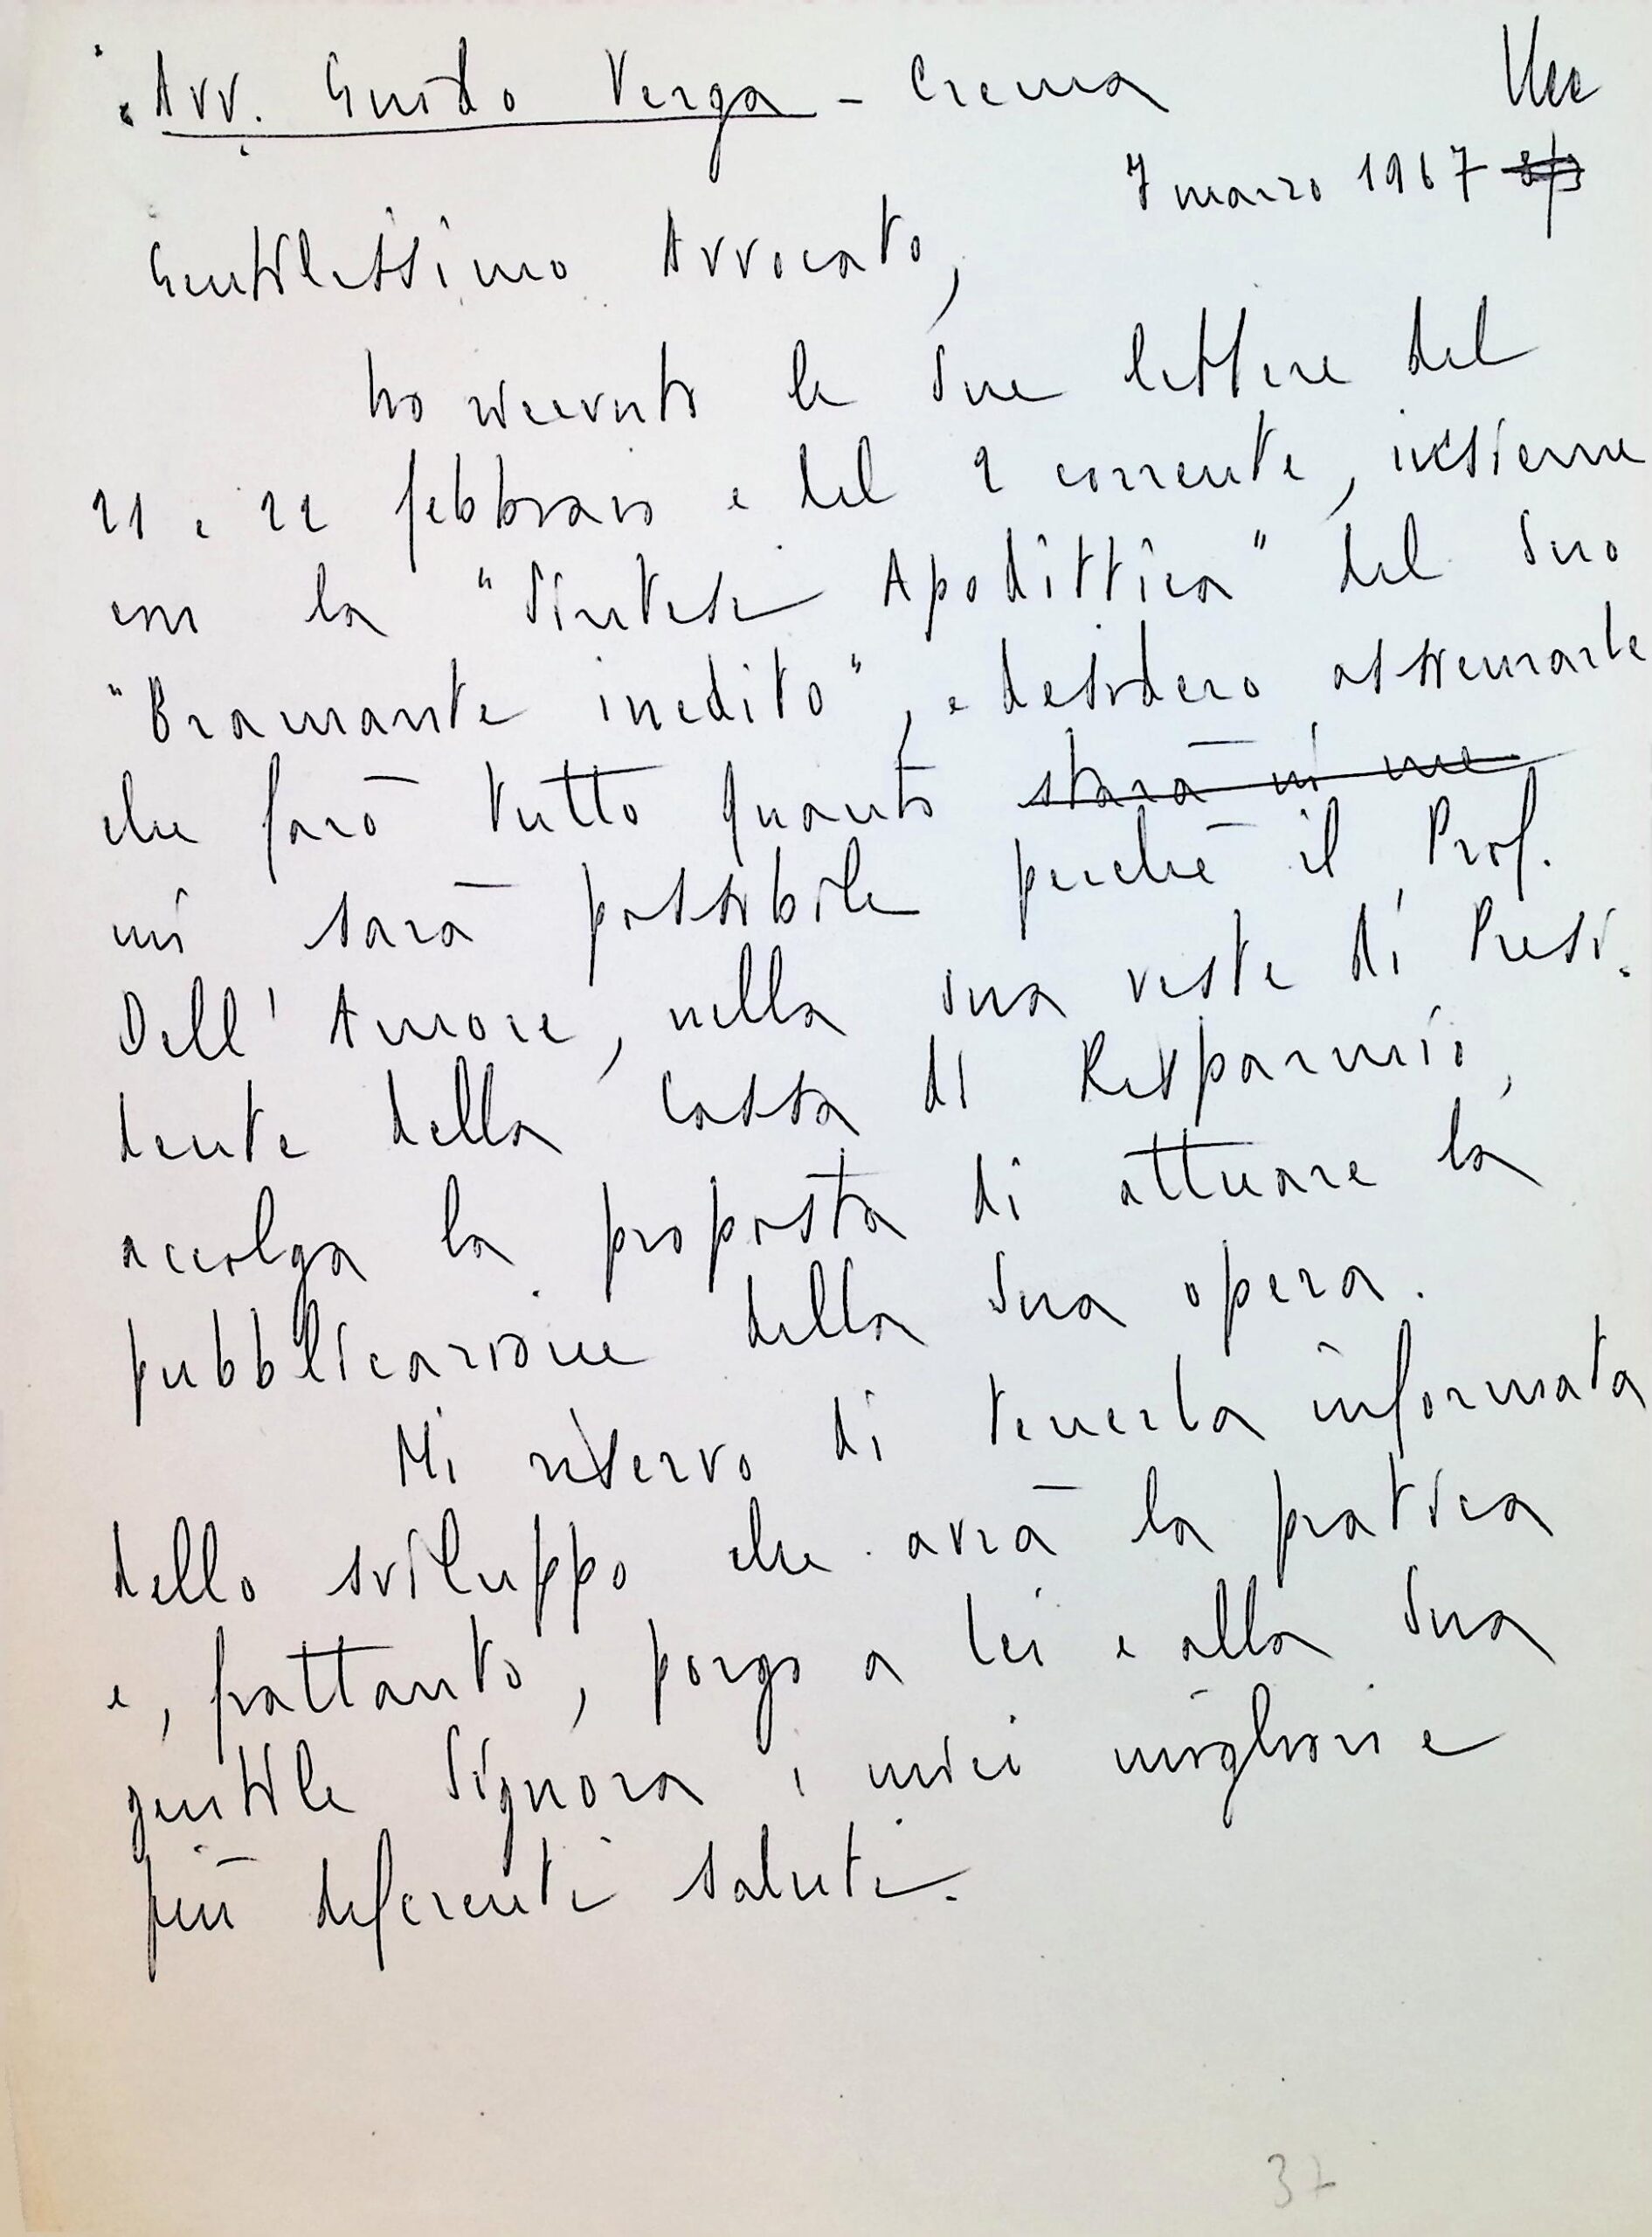 Avv. Guido Verga - Crema
7 marzo 1967
Gentilissimo Avvocato,
ho ricevuto le Sue lettere del
21 e 22 febbraio e del 2 corrente, insieme
con la "Sintesi Apodittica" del Suo
"Bramante inedito", e desidero assicurarLe
che farò tutto quanto starà in me
mi sarà possibile perchè il Prof.
Dell'Amore, nella sua veste di Presi-
dente della Cassa di Risparmio,
accolga la proposta di attuare la
pubblicazione della Sua opera.
Mi riservo di tenerLa informata
dello sviluppo che avrà la pratica
e, frattanto, porgo a Lei e alla Sua
gentile Signora i miei migliori e
più deferenti saluti.
37